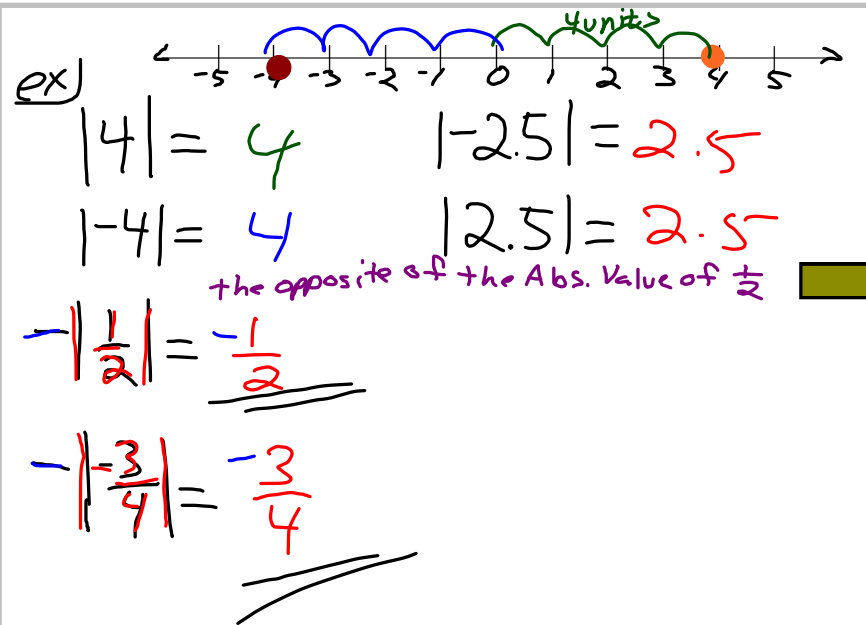 4 units
-5 -4 -3 -2 -1 0 1 2 3 4 5
ex)
|4| = 4
|-2.5| = 2.5
|-4| = 4
|2.5| = 2.5
the opposite of the Abs. Value of 1/2
-|1/2| = -1/2
-|-3/4| = -3/4